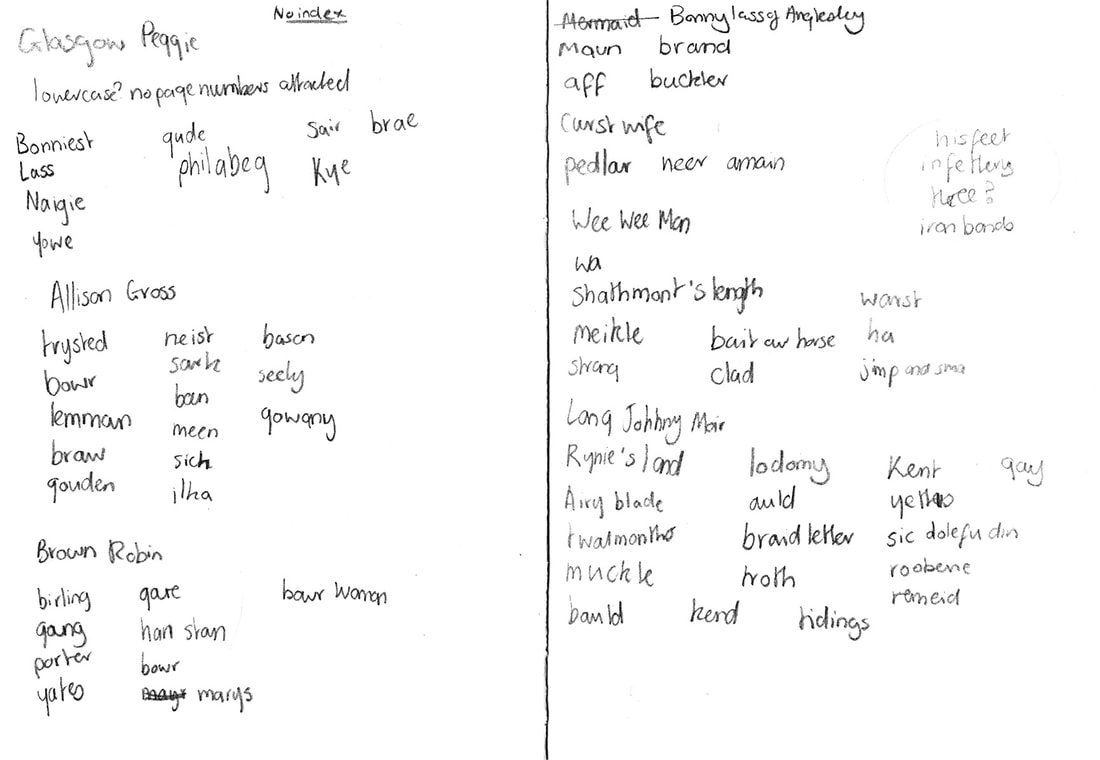 No index
Glasgow Peggie
lowercase? no page numbers attached
Bonniest gude Sair brae
Lass philabeg Kye
Naigie
Yowe
Allison Gross
trysted neist bason
bowr sark seely
lemman ban gowany
braw meen
gouden sich
ilka
Brown Robin
birling gare bowr woman
gang han stan
porter bowr
yates marys
Mermaid Bonny lass of Anglesley
Maun brand
aff buckler
Curst wife
pedlar neer amain
his feet
in fettery
three?
iron bands
Wee Wee Man
wa
Shathmont's length warst
meikle bait our horse ha
strang clad jimp and sma
Long Johhny Moir
Rynie's land lodomy Kent gay
Airy blade auld yetts
twalmonths braid letter sic dolefu din
muckle troth roobene
bauld kend tidings remeid